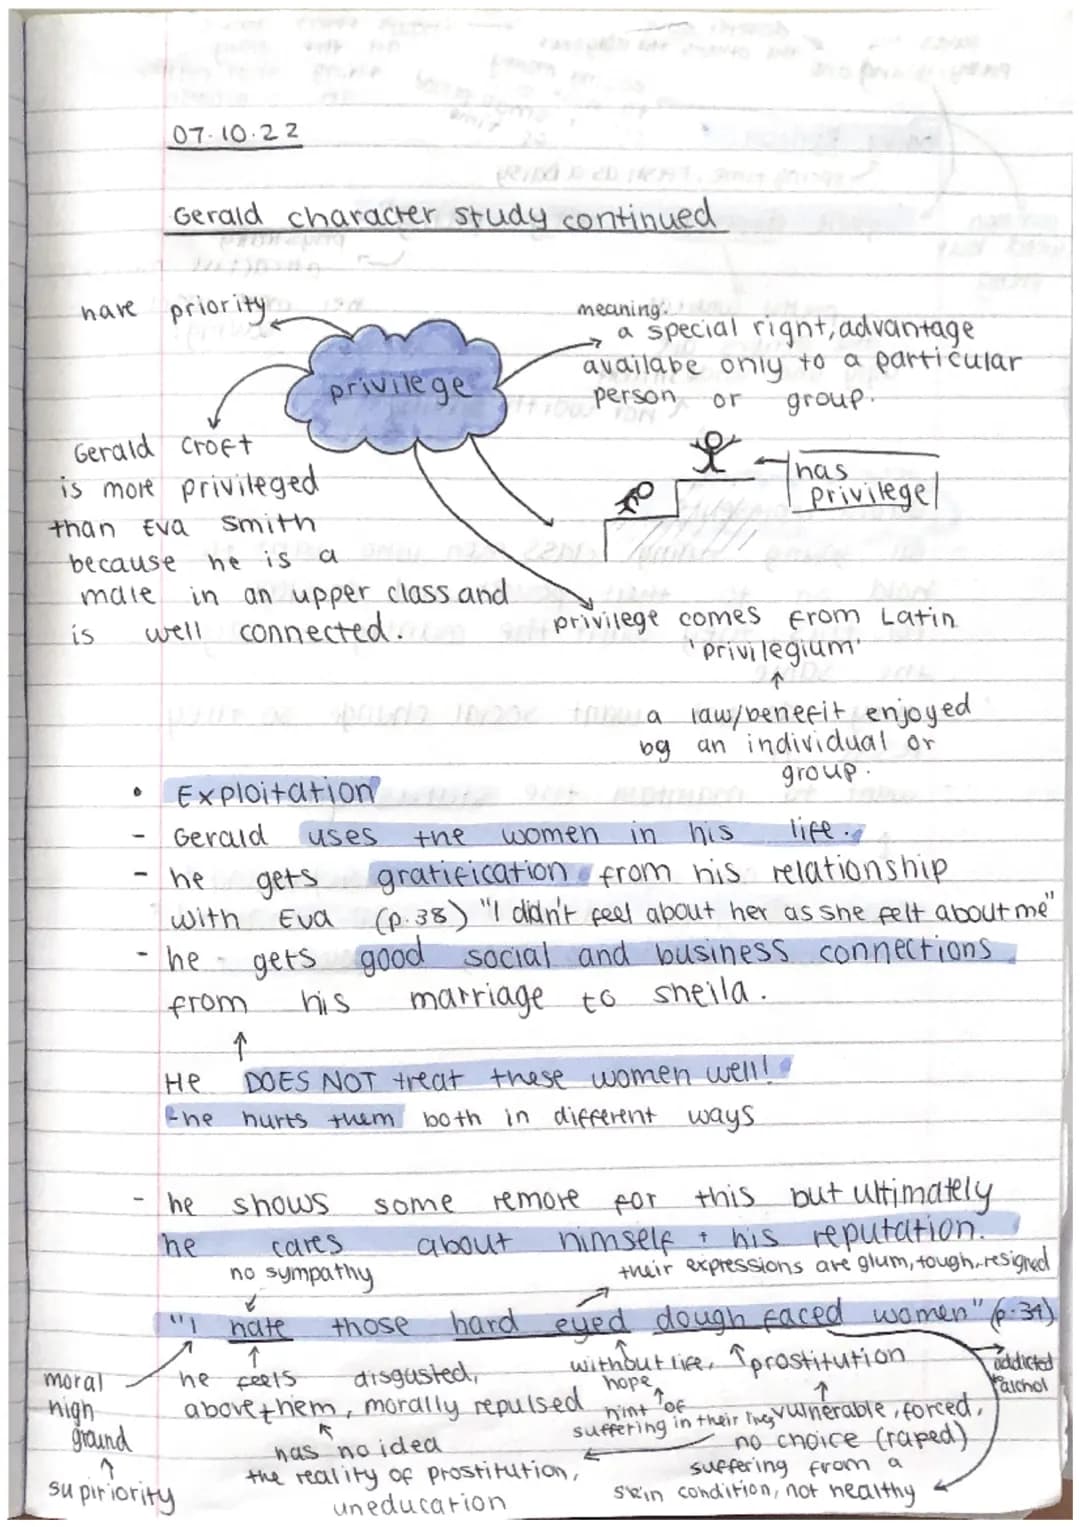 07.10.22
Gerald character study continued
have priority
privilege
meaning:
a special right, advantage
availabe only to a particular
person or group.
Gerald Croft
is more privileged
than Eva Smith
because he is a
male in an upper class and
is well connected.
has
privilege
privilege comes from Latin
'privilegium'
a law/benefit enjoyed
by an individual or
group.
• Exploitation
- Gerald uses the women in his life.
- he gets gratification from his relationship
with Eva (p.38) "I didn't feel about her as she felt about me"
- he gets good social and business connections
from his marriage to sheila.
He DOES NOT treat these women well!
- he hurts them both in different ways
- he shows some remore for this but ultimately
he cares about himself + his reputation.
no sympathy
their expressions are glum, tough, resigned
"I hate those hard eyed dough faced women" (p.34)
moral
high
ground
supiriority
he feels disgusted,
above them, morally repulsed
has no idea
the reality of prostitution,
uneducation
without life,
hope
hint of
suffering in their lives
prostitution
vulnerable, forced,
no choice (raped)
suffering from a
skin condition, not healthy
addicted
alchol